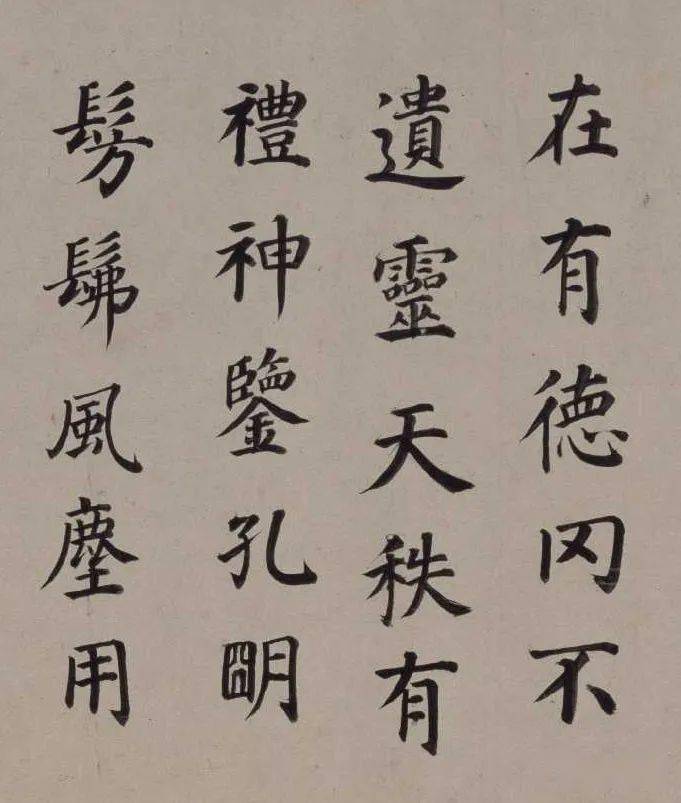 在有德罔不
遺靈天秩有
禮神鑒孔明
髣髴風塵用